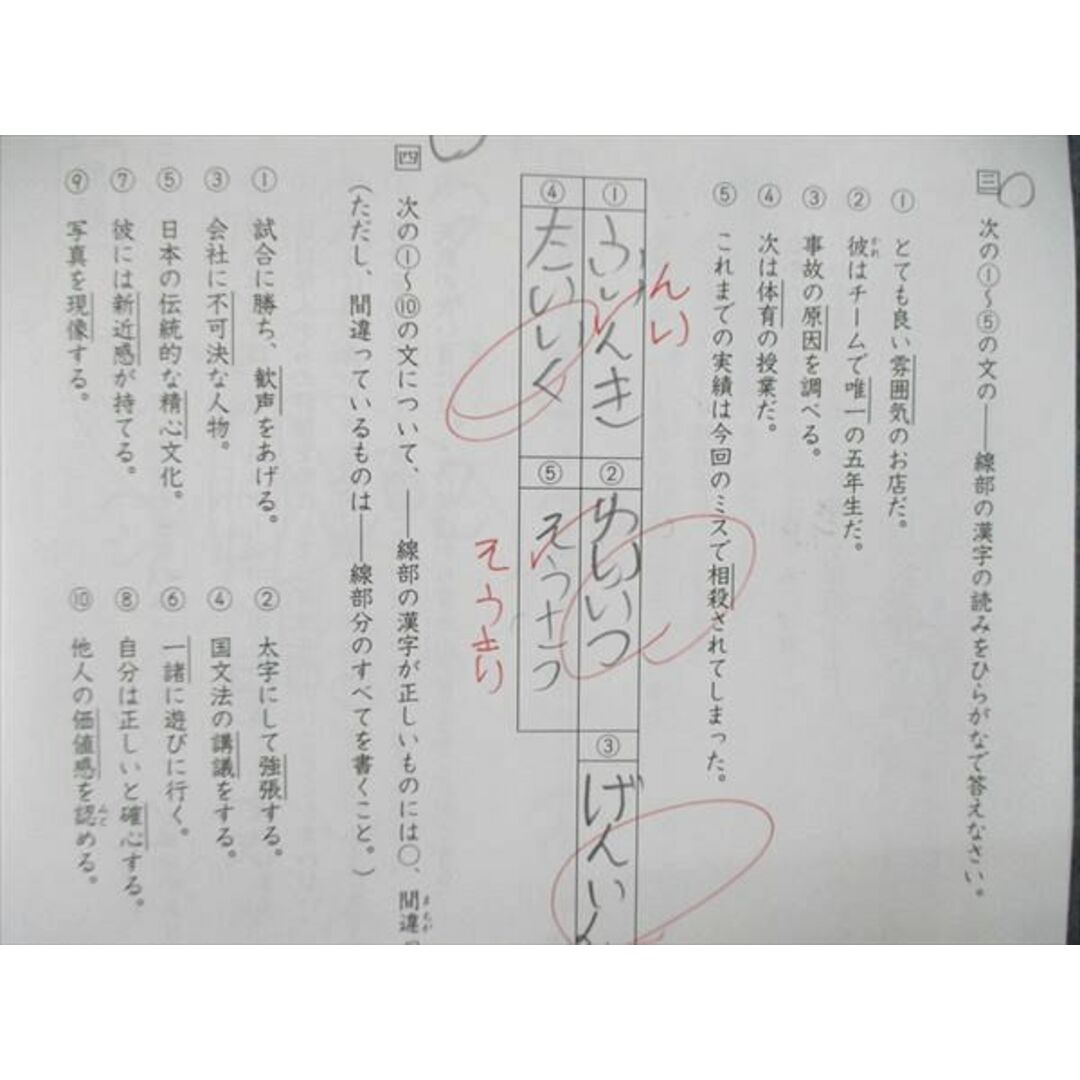 三 次の①~⑤の文の――線部の漢字の読みをひらがなで答えなさい。
① とても良い雰囲気のお店だ。
② 彼はチームで唯一の五年生だ。
かれ
③ 事故の原因を調べる。
④ 次は体育の授業だ。
⑤ これまでの実績は今回のミスで相殺されてしまった。
① ふいんき
んい
② ゆいいつ
③ げんいん
④ たいいく
⑤ そうさつ
そうさい
四 次の①~⑩の文について、――線部の漢字が正しいものには〇、間違
まちが
(ただし、間違っているものは――線部分のすべてを書くこと。)
① 試合に勝ち、歓声をあげる。
② 太字にして強張する。
③ 会社に不可決な人物。
④ 国文法の講議をする。
⑤ 日本の伝統的な精心文化。
⑥ 一諸に遊びに行く。
⑦ 彼には新近感が持てる。
⑧ 自分は正しいと確心する。
⑨ 写真を現像する。
⑩ 他人の価値感を認める。
みと